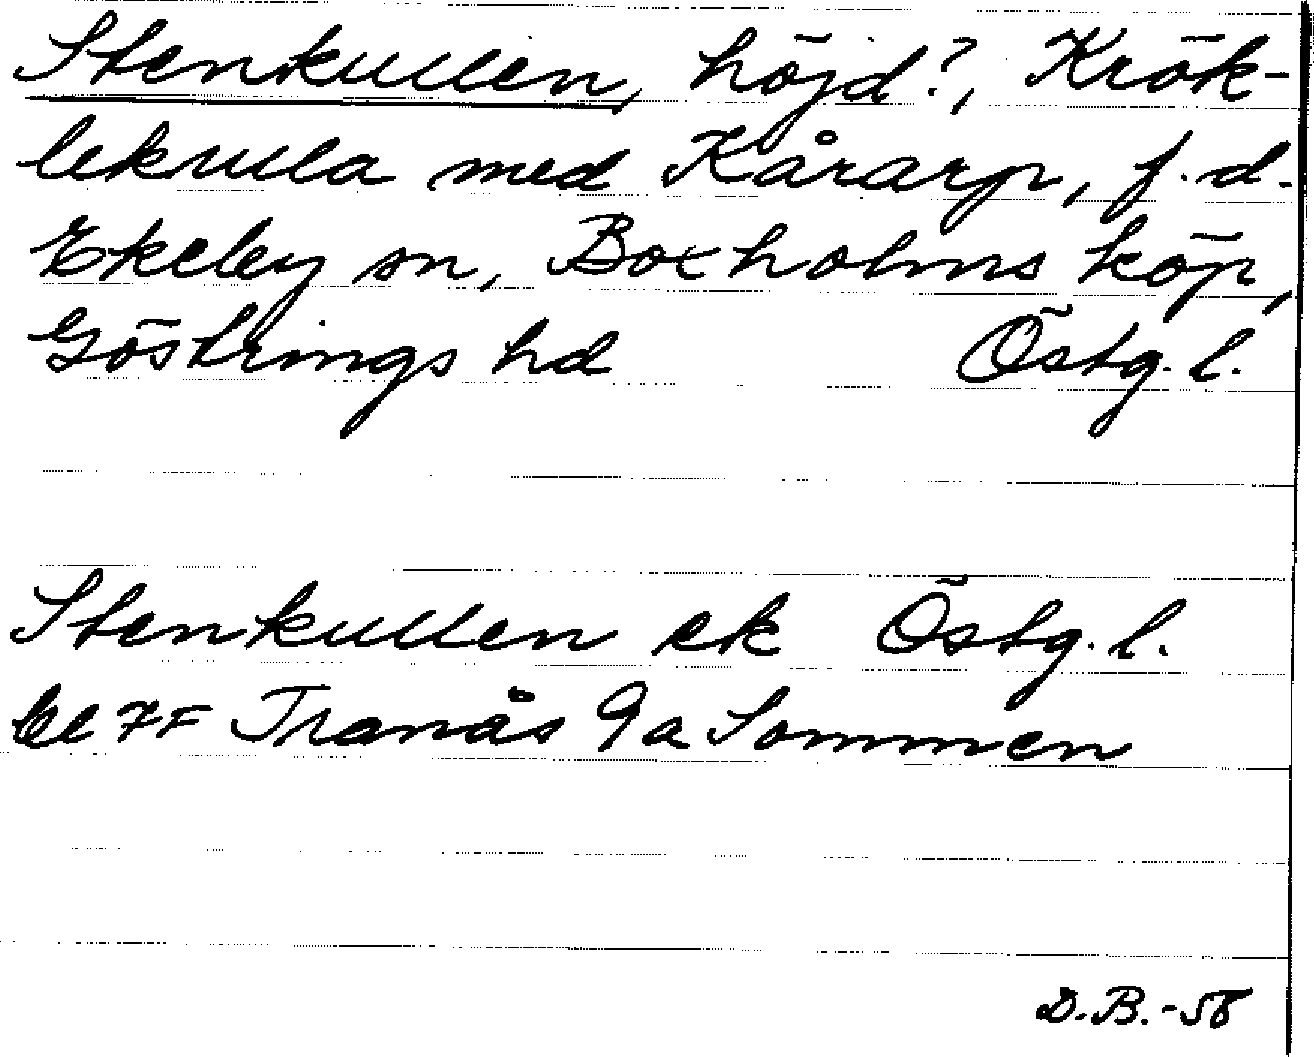 Stenkullen, höjd?, Krök-
lekulla med Kårarp, f.d.
Ekeby sn, Boxholms köp,
Göstrings hd Östg. l.
Stenkullen ek Östg. l.
bl 7F Tranås 9a Sommen
D.B.-58